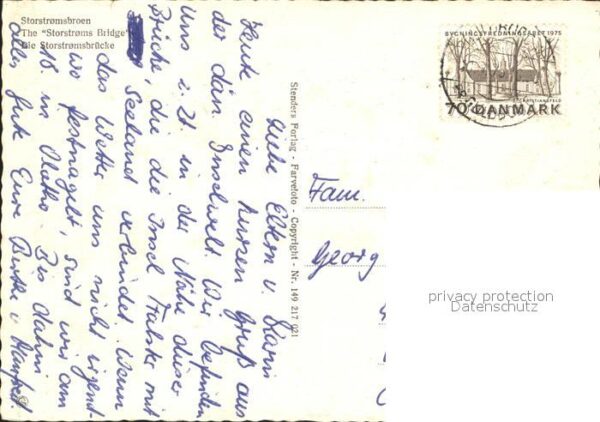 Storstrømsbroen
The "Storstrøms Bridge"
Die Storstrømsbrücke
Liebe Eltern u. Karin
Heute einen kurzen Gruß aus
der dän. Inselwelt. Wir befinden
uns z. Zt in der Nähe dieser
Brücke, die die Insel Falster mit
Seeland verbindet. Wenn
das Wetter uns nicht irgend-
wo festnagelt, sind wir am
18. in Bis dahin
alles Gute Eure u. Manfred
Stenders Forlag - Farvefoto - Copyright - Nr. 149 217 021
BYGNINGSFREDNINGSÅRET 1975
CHRISTIANSFELD
70 DANMARK
Fam.
Georg
privacy protection
Datenschutz